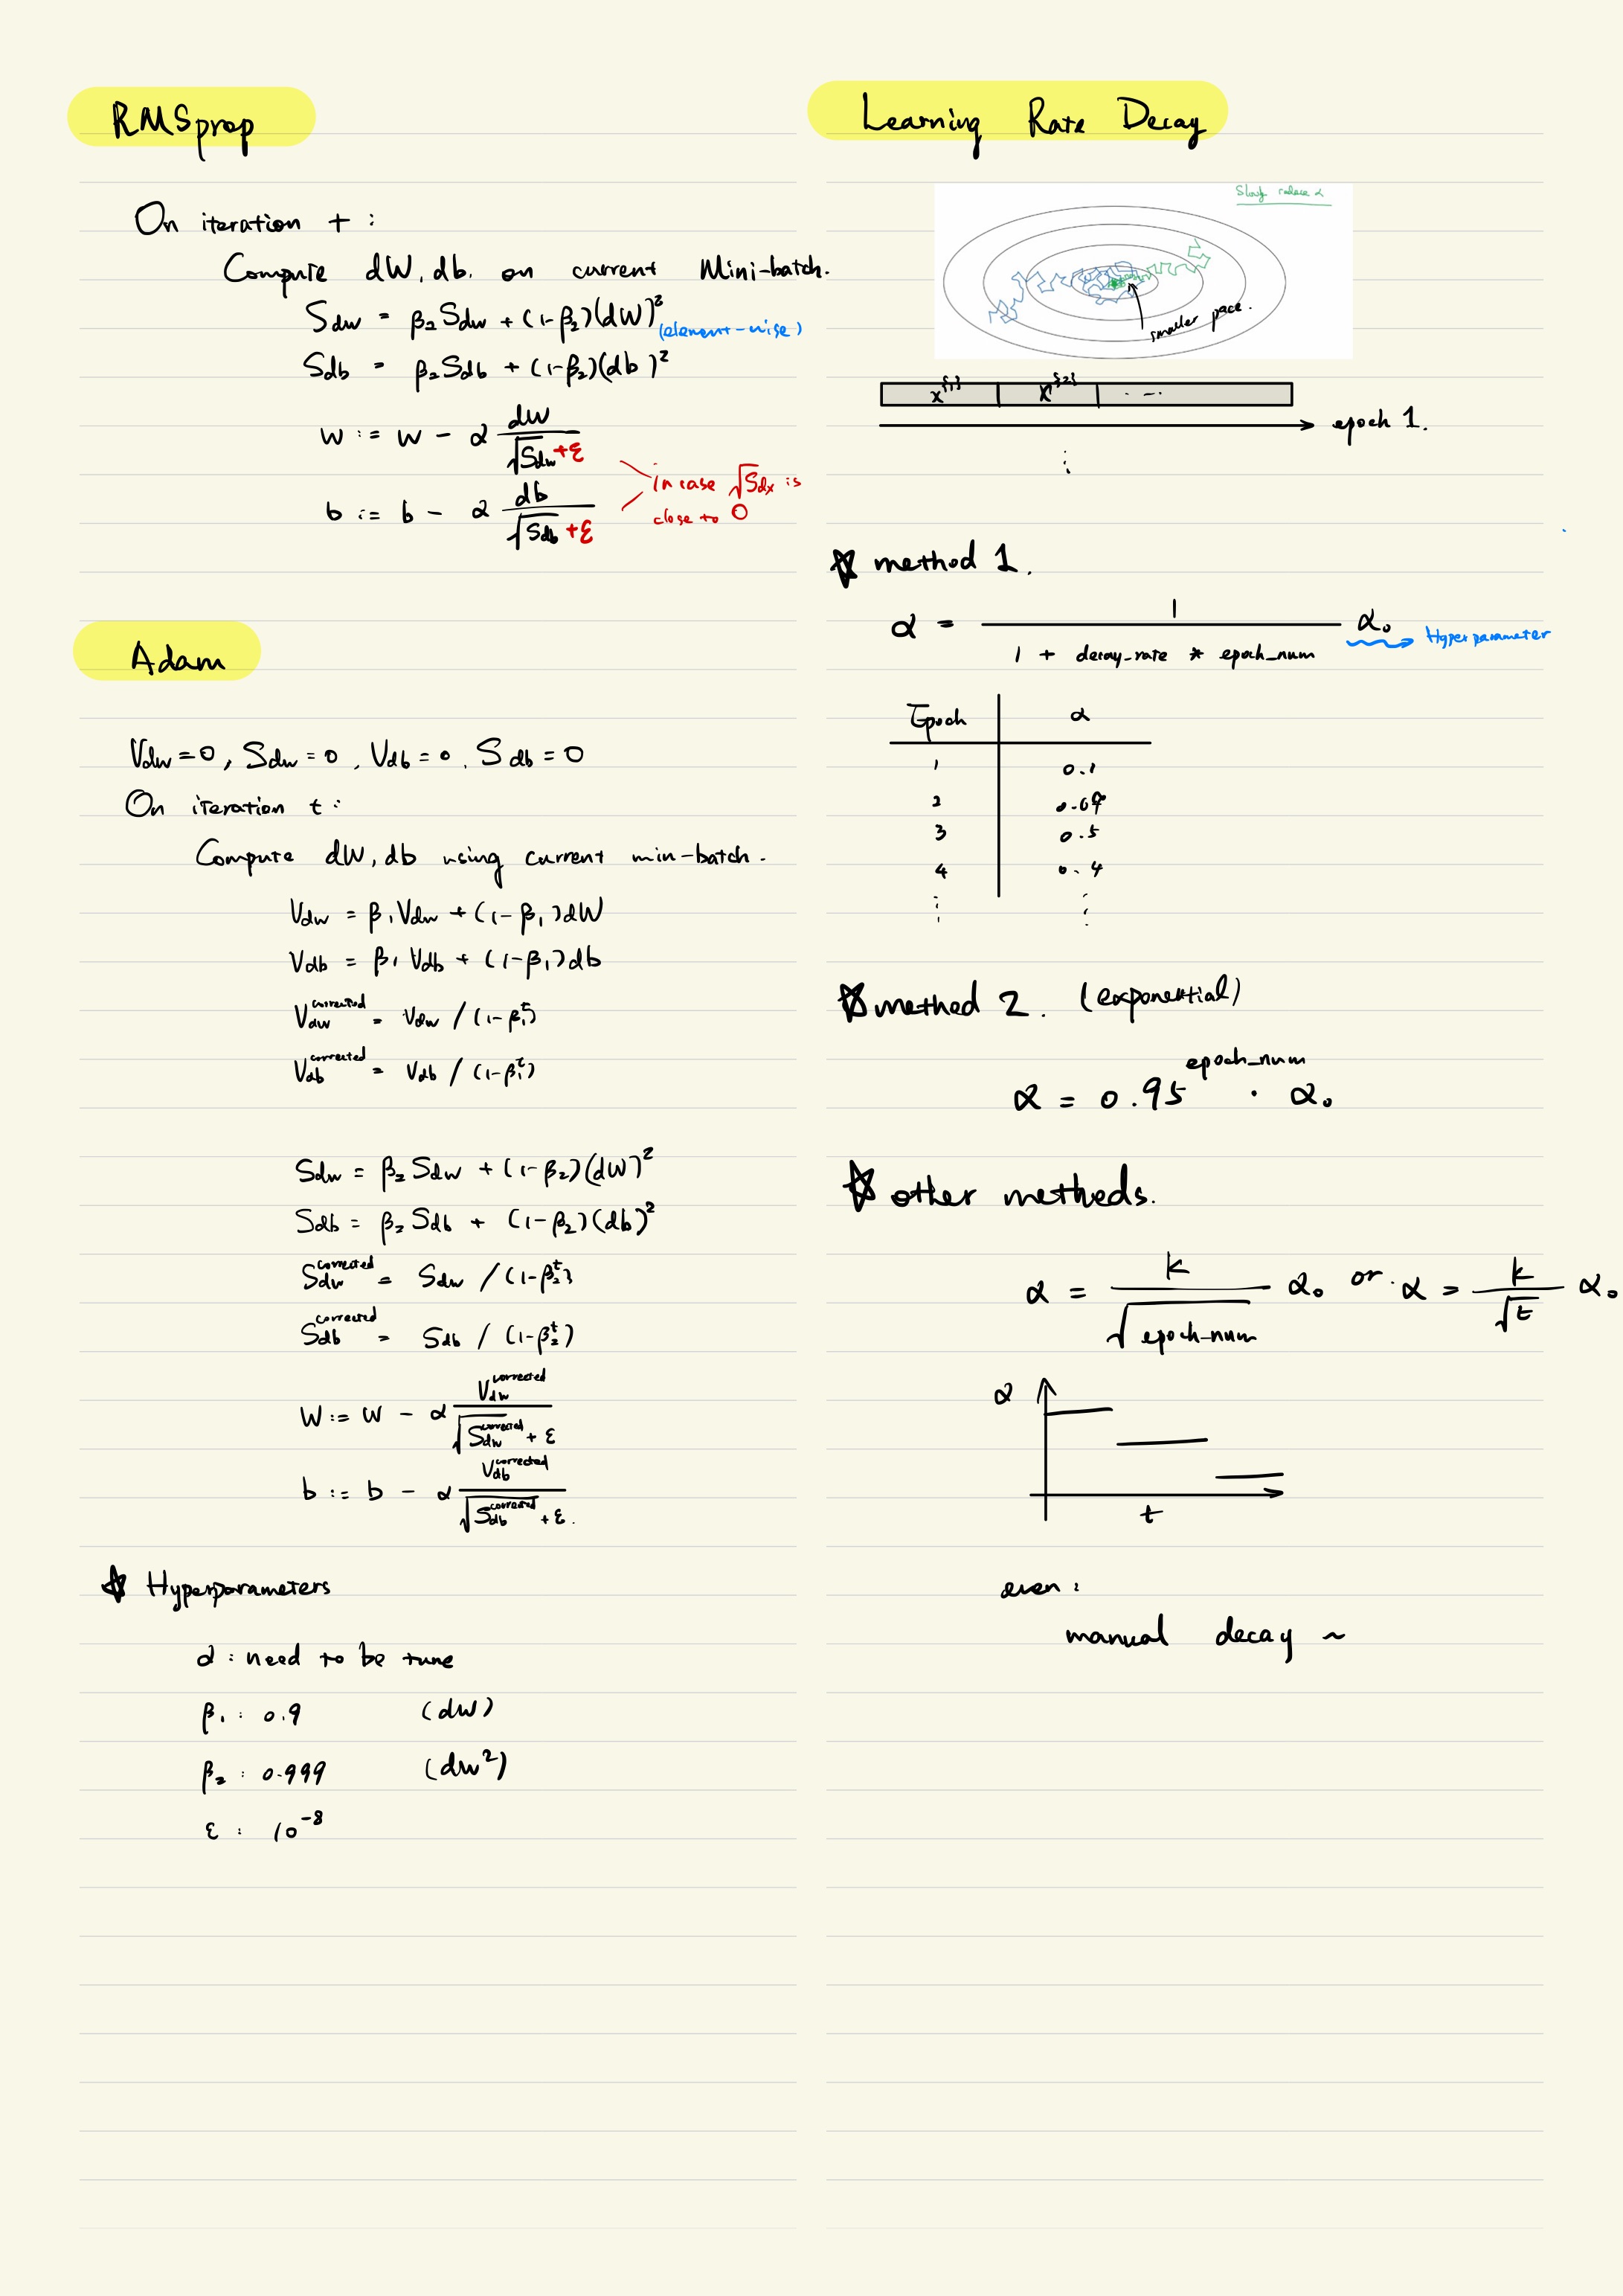 RMSprop
On iteration t :
Compute dW, db. on current Mini-batch.
Sdw = β₂ Sdw + (1-β₂)(dW)² (element-wise)
Sdb = β₂ Sdb + (1-β₂)(db)²
W := W - α dW / √Sdw +ε
b := b - α db / √Sdb +ε
in case √Sdx is
close to 0
Adam
Vdw = 0, Sdw = 0, Vdb = 0, Sdb = 0
On iteration t :
Compute dW, db using current min-batch.
Vdw = β₁ Vdw + (1-β₁)dW
Vdb = β₁ Vdb + (1-β₁)db
Vdw^corrected = Vdw / (1-β₁ᵗ)
Vdb^corrected = Vdb / (1-β₁ᵗ)
Sdw = β₂ Sdw + (1-β₂)(dW)²
Sdb = β₂ Sdb + (1-β₂)(db)²
Sdw^corrected = Sdw / (1-β₂ᵗ)
Sdb^corrected = Sdb / (1-β₂ᵗ)
W := W - α Vdw^corrected / √Sdw^corrected + ε
b := b - α Vdb^corrected / √Sdb^corrected + ε.
☆ Hyperparameters
α : need to be tune
β₁ : 0.9 (dW)
β₂ : 0.999 (dw²)
ε : 10⁻⁸
Learning Rate Decay
Slowly reduce α
smaller pace.
x^{1} X^{2} . - -
epoch 1.
☆ method 1.
α = 1 / 1 + decay_rate * epoch_num α₀ → Hyperparameter
Epoch α
1 0.1
2 0.07
3 0.5
4 0.4
☆ method 2. (exponential)
α = 0.95^epoch_num · α₀
☆ other methods.
α = k / √epoch-num α₀ or. α = k / √t α₀
α
t
even :
manual decay ~